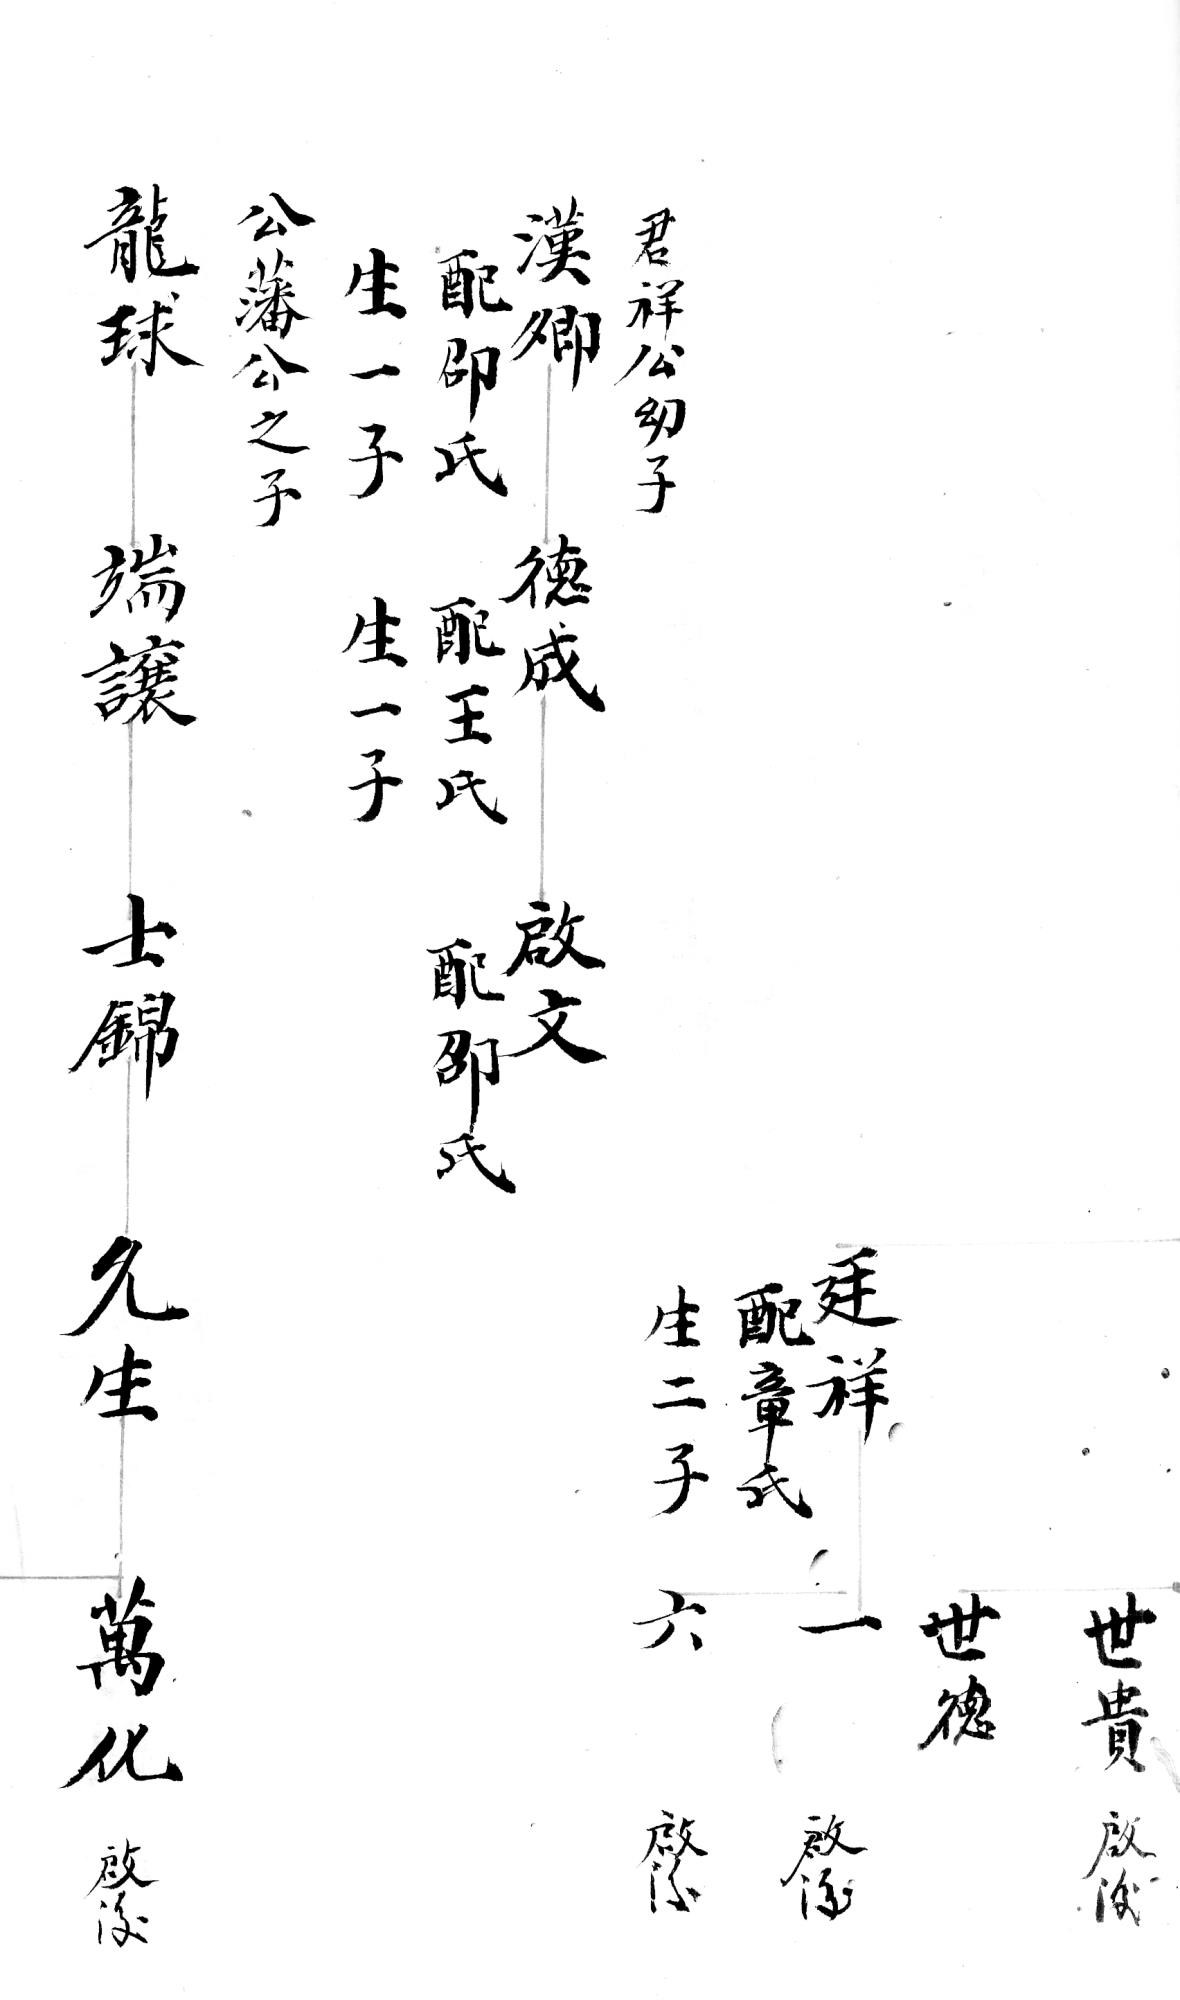 世貴 啟後
世德
廷祥
一 啟後
配章氏
生二子
六 啟後
君祥公幼子
漢卿 德成 啟文
配邵氏 配王氏 配邵氏
生一子 生一子
公藩公之子
龍球 端讓 士錦 久生 萬化 啟後